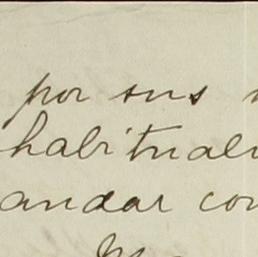 por sus
habitual
andar con